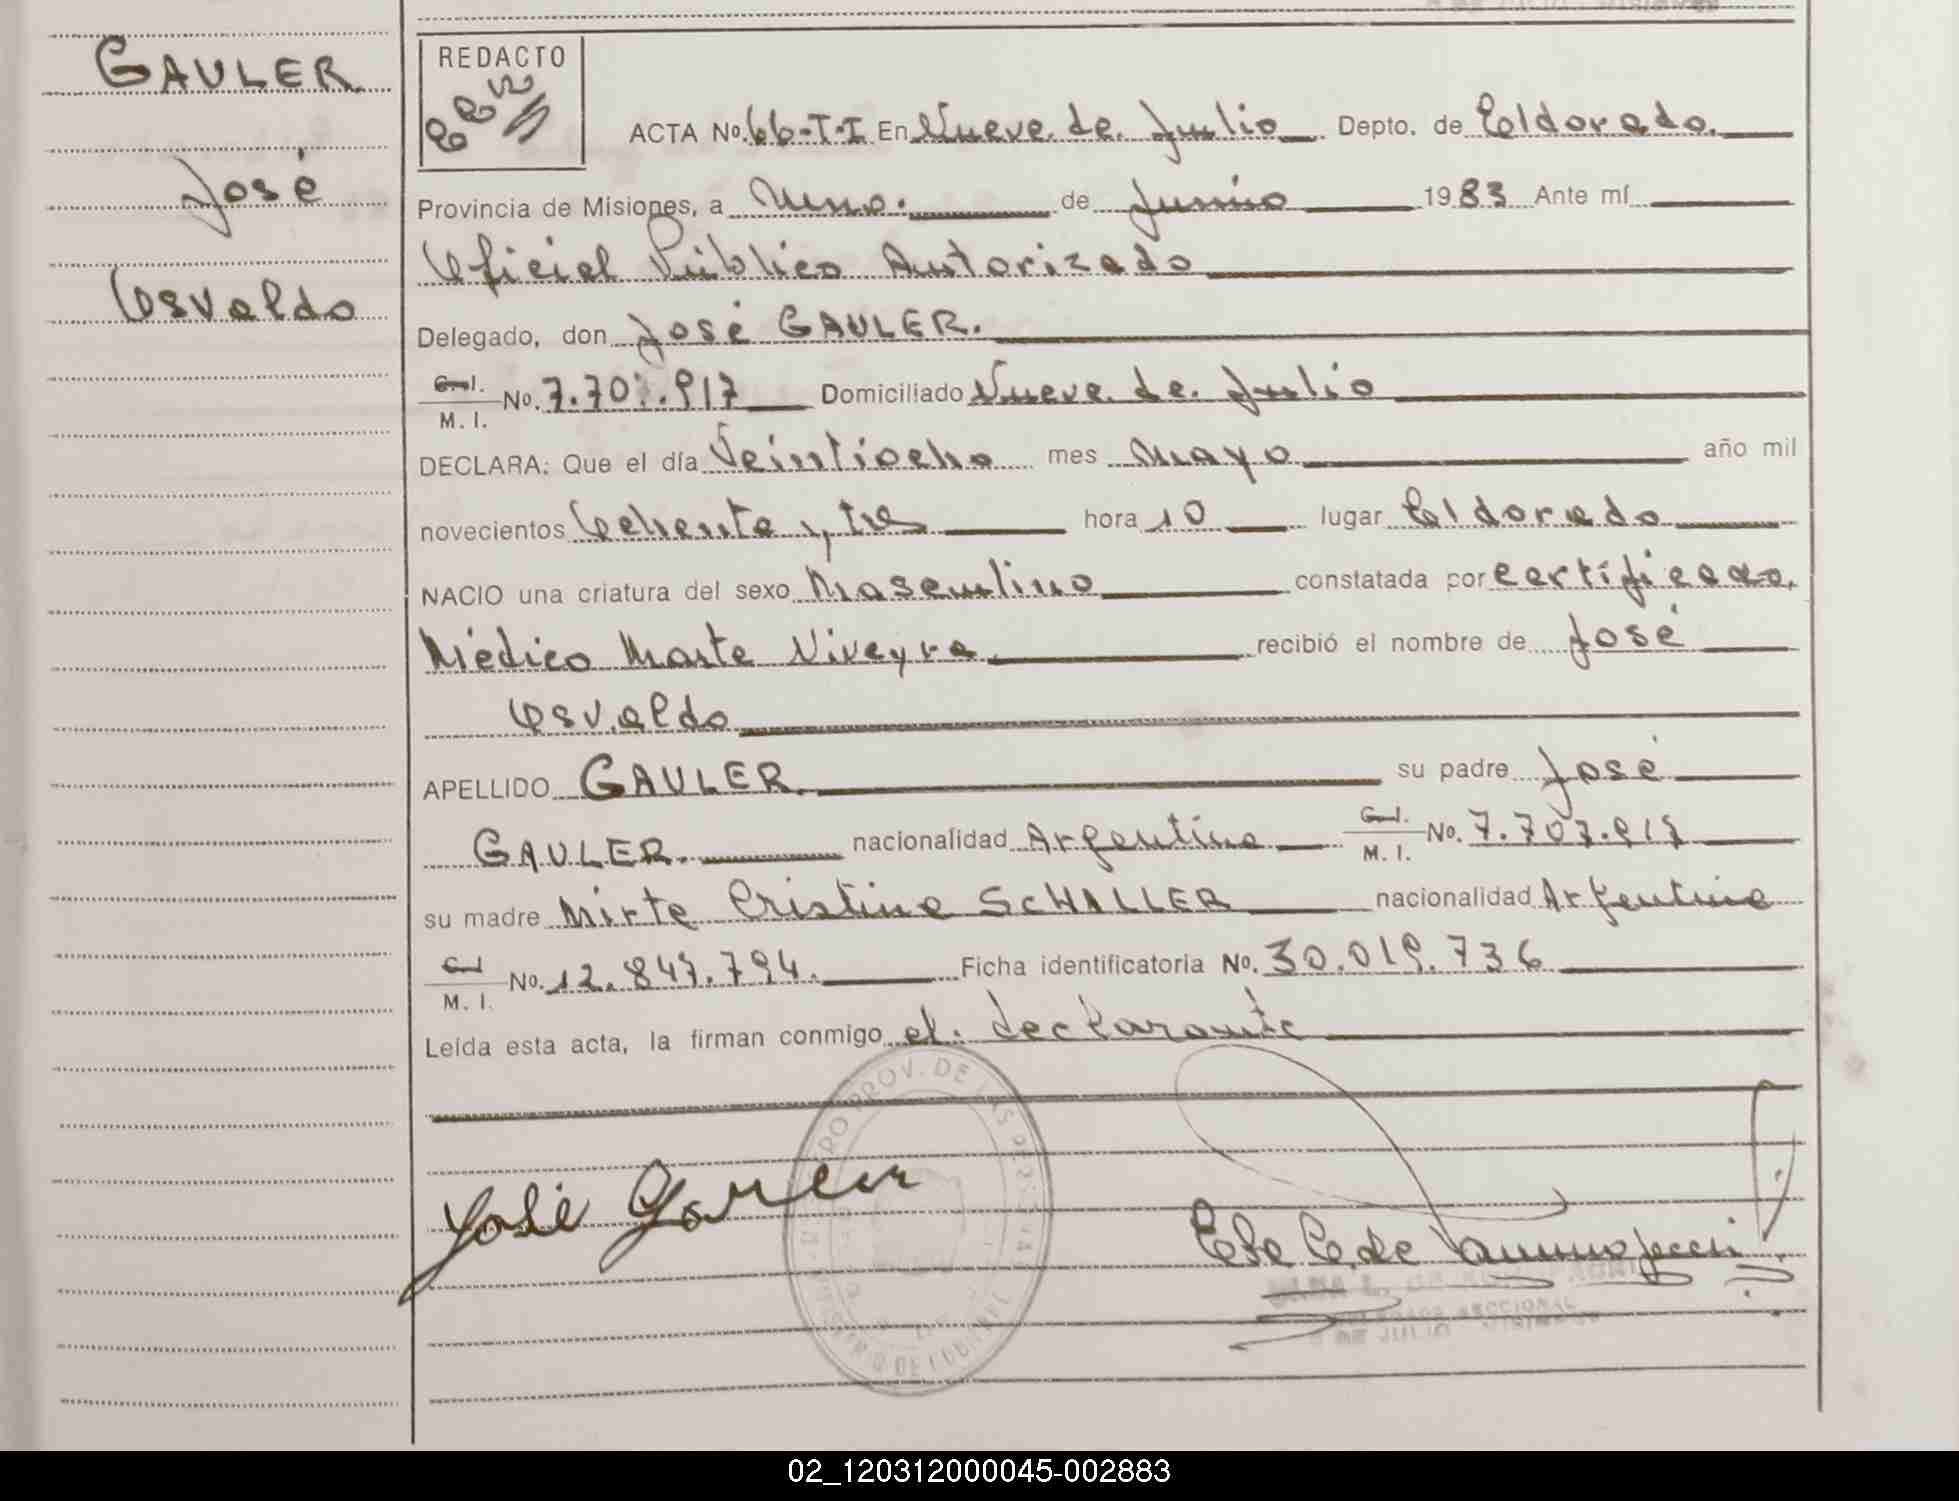 GAULER
José
Osvaldo
REDACTO
ACTA No. 66-T-I En Nueve de Julio Depto. de Eldorado.
Provincia de Misiones, a Uno. de Junio 1983 Ante mí
Oficial Público Autorizado
Delegado, don José GAULER.
C.I. M.I. No. 7.707.917 Domiciliado Nueve de Julio
DECLARA: Que el día Veintiocho mes Mayo año mil
novecientos Ochenta y tres hora 10 lugar Eldorado
NACIO una criatura del sexo Masculino constatada por certificado
Médico Marta Niveyra recibió el nombre de José
Osvaldo
APELLIDO GAULER. su padre José
GAULER. nacionalidad Argentina C.I. M.I. No. 7.707.917
su madre Mirta Cristina SCHALLER nacionalidad Argentina
C.I. M.I. No. 12.847.794. Ficha identificatoria No. 30.019.736
Leída esta acta, la firman conmigo el declarante
PROV. DE LAS PERSONAS
José Gauler
SECCIONAL
9 DE JULIO - MISIONES
02_120312000045-002883